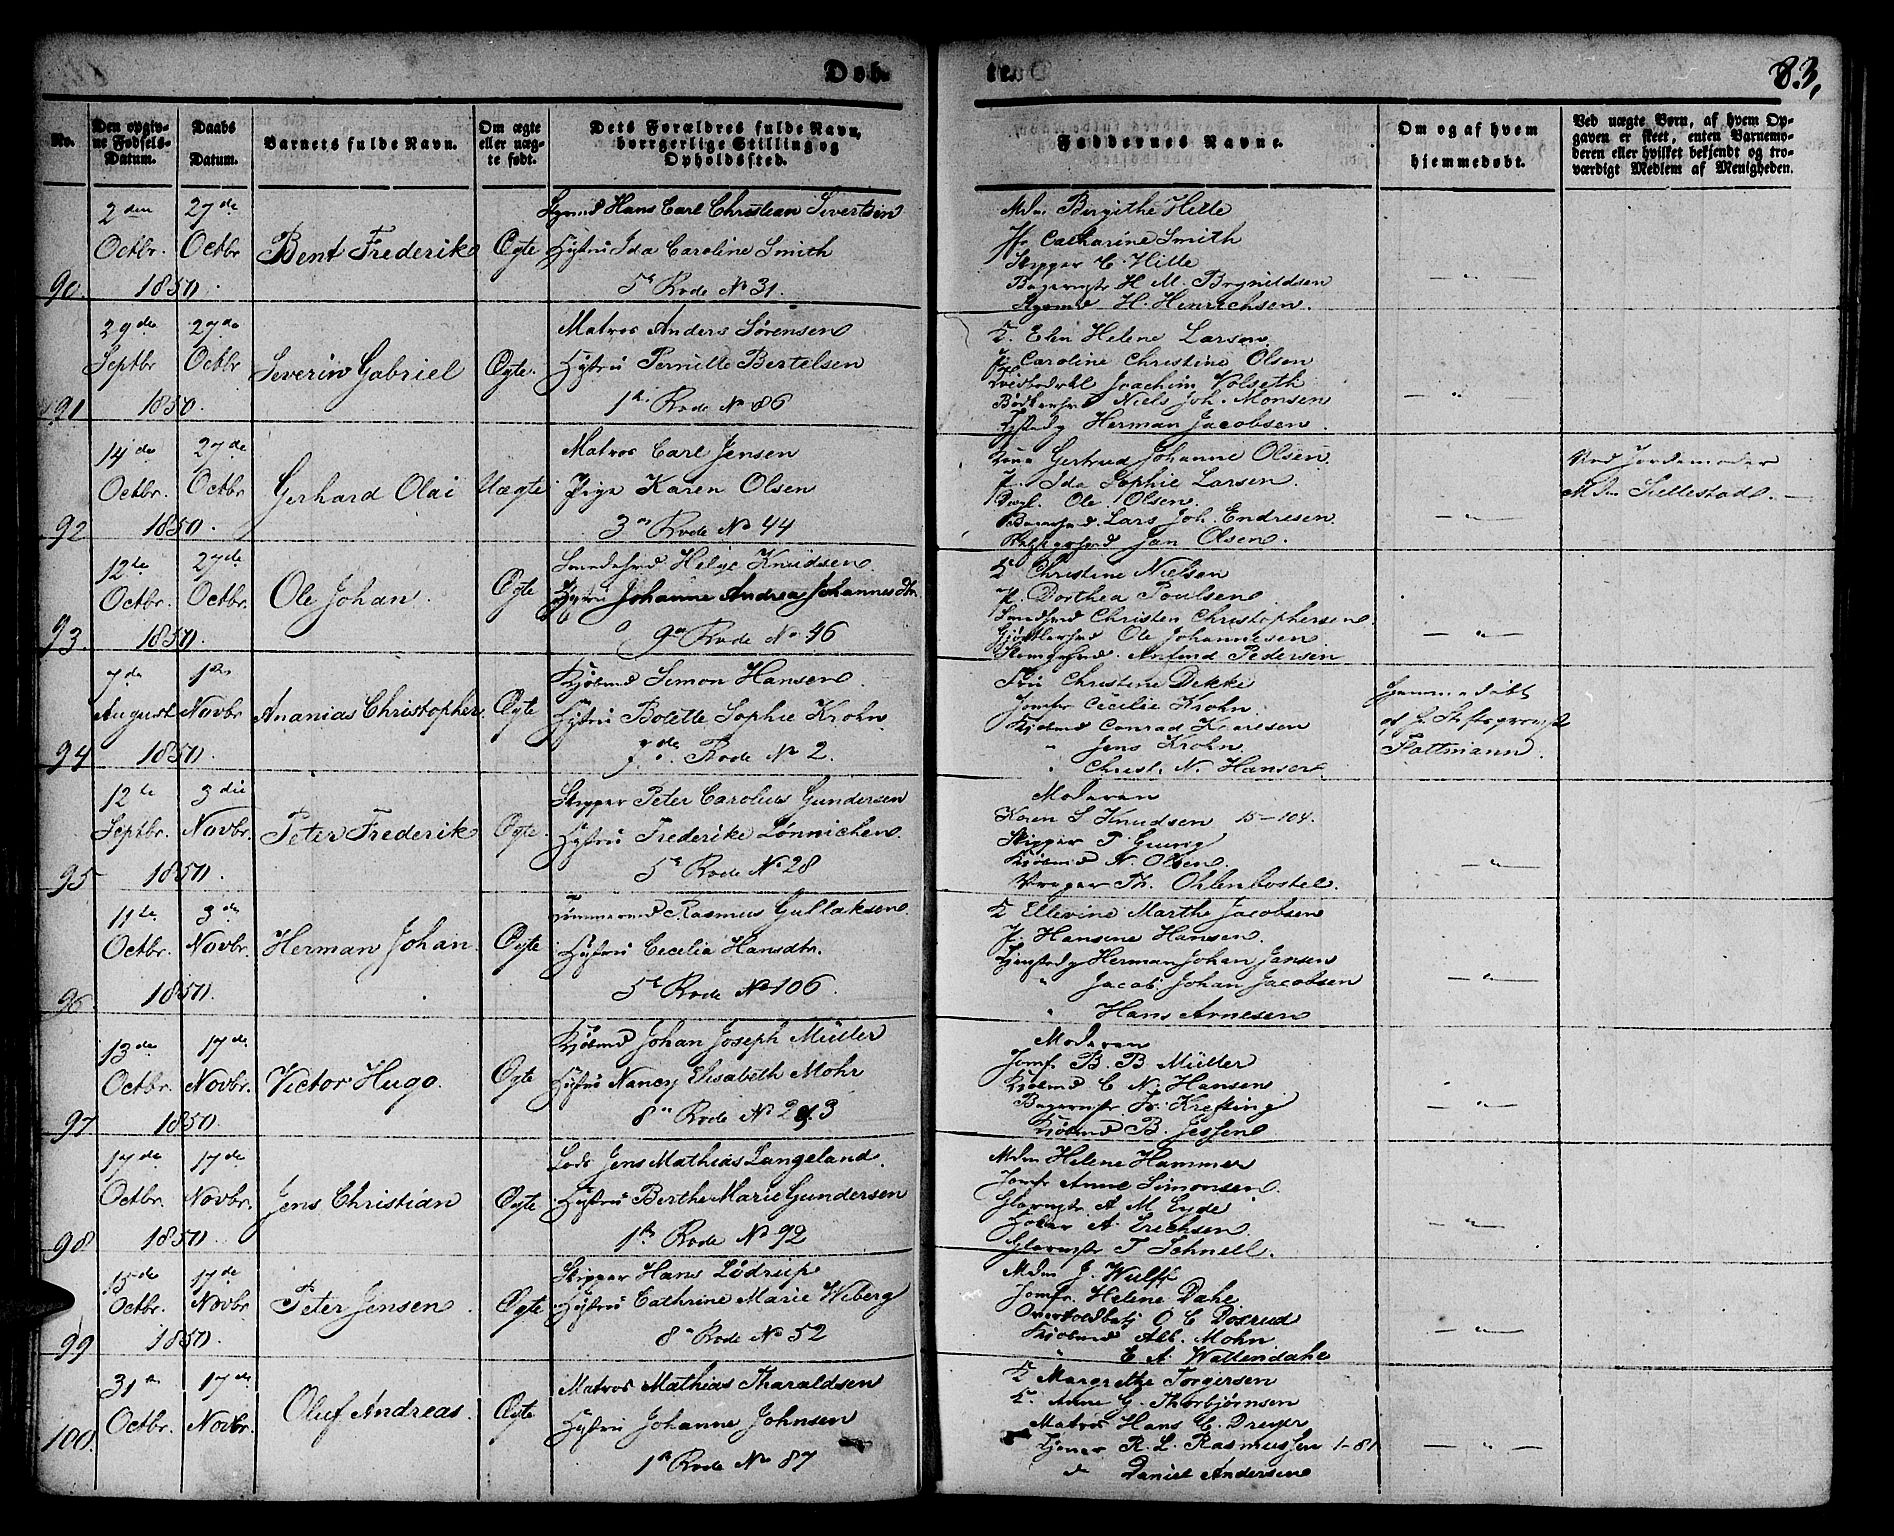 Døb- te. 83,
No. Den opgiv- ne Fødsels- Datum. Daabs Datum. Barnets fulde Navn. Om ægte eller uæg- te født. Dets Forældres fulde Navn, borgerlige Stilling og Opholdssted. Faddernes Navne. Om og af hvem hjemmedøbt. Ved uægte Børn, af hvem Op- gaven er skeet, enten Barnemo- deren eller hvilket bekjendt og tro- værdigt Medlem af Menigheden.
2den 27de Hans Carl Christian Sivertsen
Octbr. Octbr Bent Frederik Ægte Hustru Ida Caroline Smith
90. 1850. 5t Rode No 31.
Mdm Birgithe Hille
Jfr Catharine Smith
Skipper C. Hille
Bagermstr H. M. Brynildsen
H. Hinrichsen
29de 27de Matros Anders Sørensen
Septbr Octbr Severin Gabriel Ægte. Hustru Pernille Bertelsen
91 1850. 1te Rode No 86
K. Elen Helene Larsen
P. Caroline Christine Olsen
Joachim Volseth
Niels Joh. Monsen
Herman Jacobsen
14de 27de Matros Carl Jensen
Octbr. Octbr Gerhard Olai Uægte Pige Karen Olsen
92 1850. 3de Rode No 44
Kone Gertrud Johanne Olsen
P. Ida Sophie Larsen.
Ole Olsen
Lars Joh. Endresen
Jan Olsen.
Ved Jordemoder
Mdm Sellestad. —
12te 27de Helge Knudsen
Octbr. Octbr. Ole Johan. Ægte Hustru Johanne Andrea Johannesdtr.
93. 1850. 9de Rode No 46
K Christine Nielsen
P. Dorthea Poulsen
Christen Christophersen
Ole Johannesen
Anfind Pedersen
7de 1ste Kjøbmd Simon Hansen.
August Novbr Ananias Christopher. Ægte Hustru Bolette Sophie Krohn
94 1850. 7de Rode No 2.
Fru Christine Dekke
Jomfr Cecilie Krohn
Kjøbmd Conrad
" Jens Krohn
" Christ. N. Hansen
Hjemmedøbt
af Hr Stiftsprovst
12te 3die Skipper Peter Carolius Gundersen
Septbr. Novbr. Peter Frederik Ægte. Hustru Frederike Lønnichen.
95 1850. 5t Rode No 28
Moderen
Karen S Knudsen 15-104.
Skipper P.
Kjøbmd N. Olsen
Vrager Th. Ohlenbostel.
11te 3de Tømmermd Rasmus Gullaksen.
Octbr. Novbr. Herman Johan Ægte Hustru Cecilia Hansdtr.
96 1850. 5t Rode No 106.
K Ellevine Marthe Jacobsen
P. Hansene Hansen.
Herman Johan Jansen
" Jacob Johan Jacobsen
" Hans Arnesen
13de 17de Kjøbmd Johan Joseph Müller
Octbr. Novbr. Victor Hugo. Ægte Hustru Nancy Elisabeth Mohr
97 1850.
Moderen
Jomf. B. B Müller
Kjøbmd C N. Hansen
Bagermstr Fr. Krefting
Kjøbmd B. Jessen
17de 17de Lods Jens Mathias Langeland.
Octbr. Novbr. Jens Christian Ægte Hustru Berthe Marie Gundersen
98 1850. 1ste Rode No 92
Mdm Helene Hammer
Jomfr Anne Simonsen.
Glarmstr A. M. Eyde
A. Erichsen
Glarmstr T. Schnell.
15de 17de Skipper Hans Lødrup
Octbr. Novbr Peter Jensen Ægte Hustru Cathrine Marie Wiberg
99 1850. 8de Rode No 52
Mdm J. Wulff
Jomfr. Helene Dahl
O C Dosrud
Kjøbmd Alb. Mohn
" E A. Wallendahl
31te 17de Matros Mathias Tharaldsen
Octbr. Novbr. Oluf Andreas. Ægte Hustru Johanne Johnsen
100. 1ste Rode No 87
K Margrethe Torgersen
K. Anne G. Thorbjørnsen
Matros Hans C. Dreyer
R. L. Rasmussen 1-81
Daniel Andersen